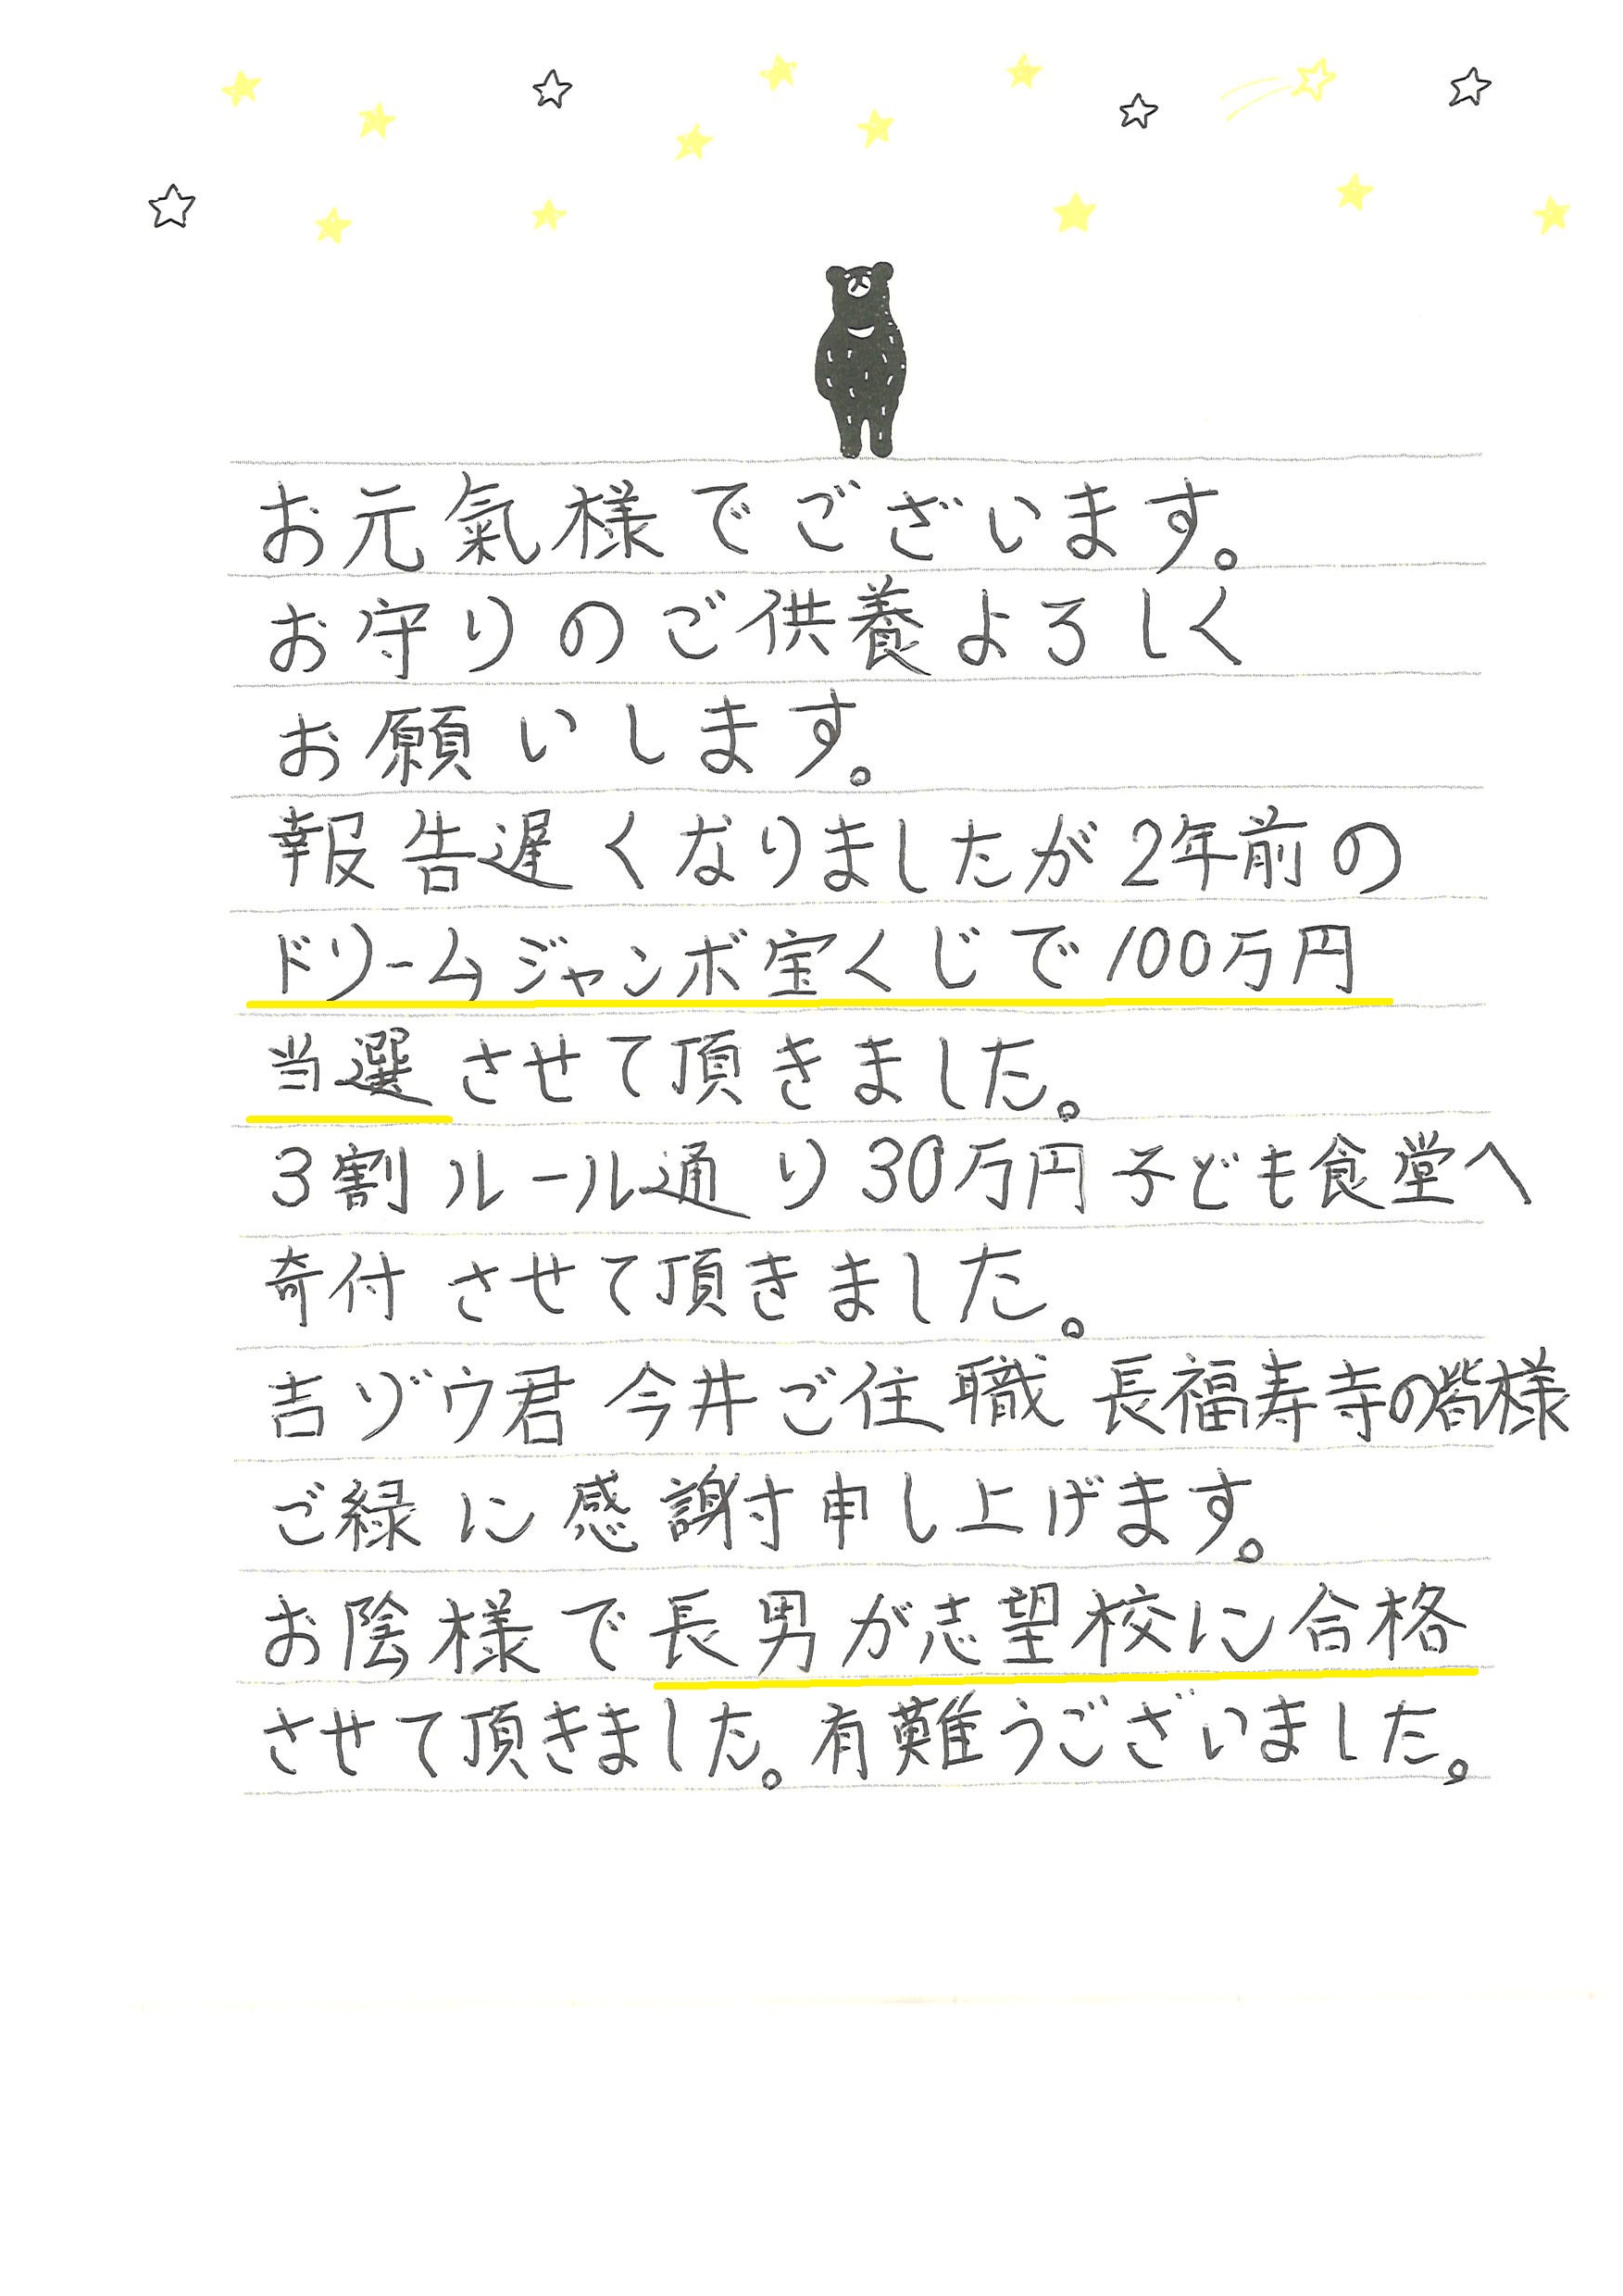 お元氣様でございます。
お守りのご供養よろしく
お願いします。
報告遅くなりましたが2年前の
ドリームジャンボ宝くじで100万円
当選させて頂きました。
3割ルール通り30万円子ども食堂へ
寄付させて頂きました。
吉ゾウ君 今井ご住職 長福寿寺の皆様
ご緑に感謝申し上げます。
お陰様で長男が志望校に合格
させて頂きました。有難うございました。